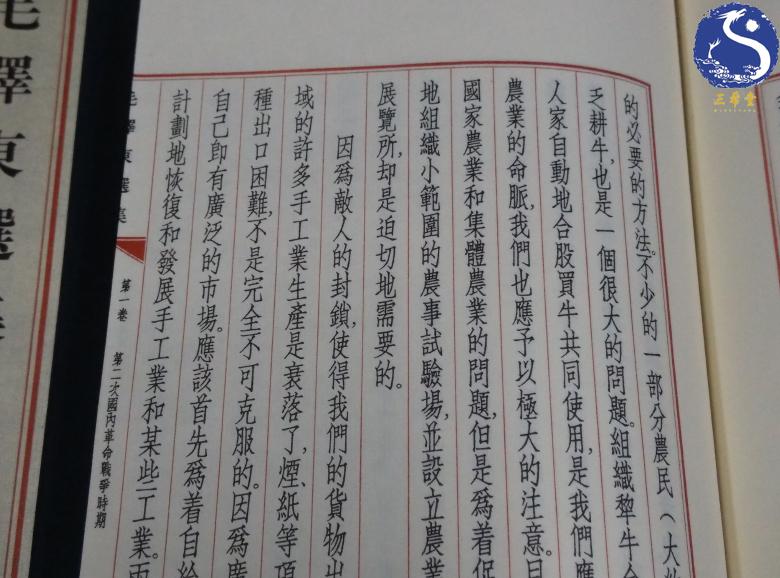 的必要的方法。不少的一部分農民（大
乏耕牛，也是一個很大的問題。組織犂牛合
人家自動地合股買牛共同使用，是我們應
農業的命脈，我們也應予以極大的注意。目
國家農業和集體農業的問題，但是爲着促
地組織小範圍的農事試驗場，並設立農業
展覽所，却是迫切地需要的。
因爲敵人的封鎖，使得我們的貨物出
域的許多手工業生產是衰落了，煙、紙等項
種出口困難，不是完全不可克服的。因爲廣
自己即有廣泛的市場。應該首先爲着自給
計劃地恢復和發展手工業和某些工業。兩
毛澤東選集
第一卷 第二次國內革命戰爭時期
毛澤東選
三希堂